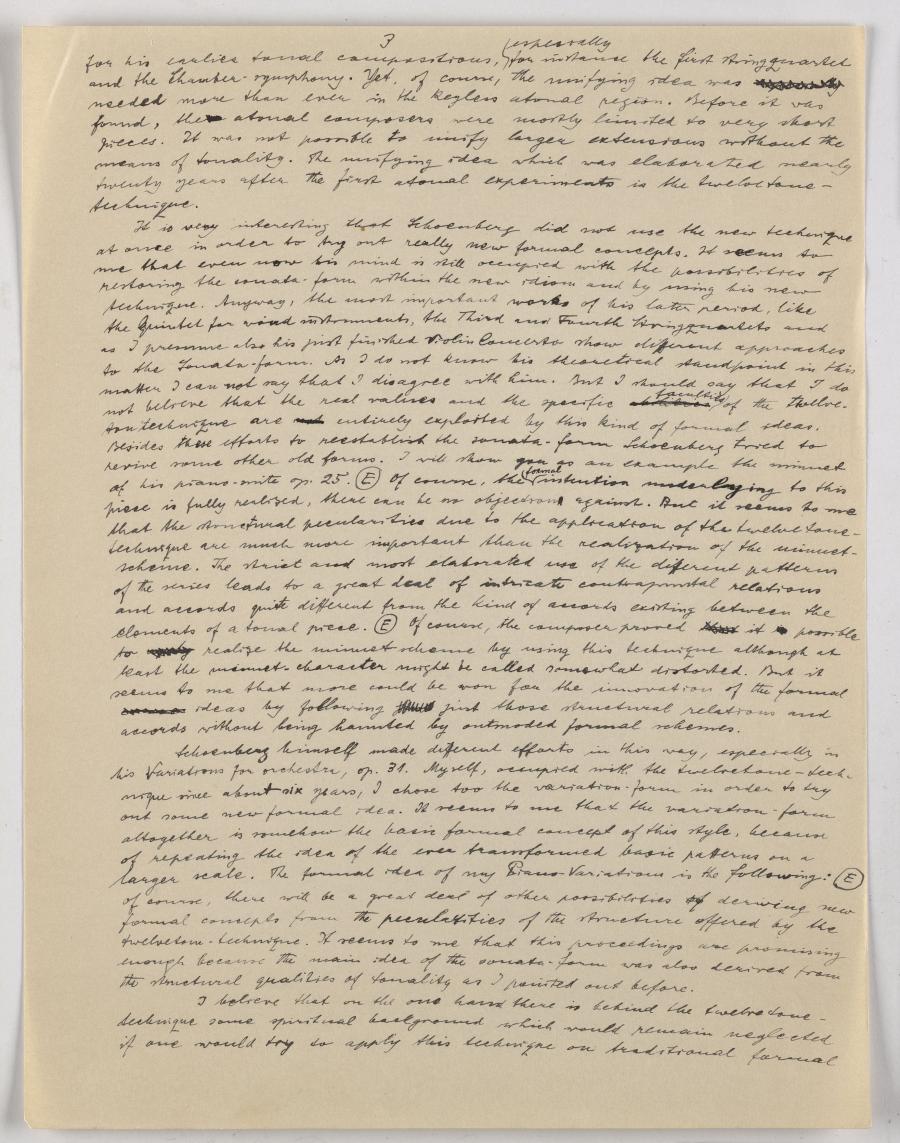 3
for his earlier tonal compositions, (especially) for instance the first stringquartet
and the Chamber-symphony. Yet, of course, the unifying idea was
needed more than ever in the keyless atonal region. Before it was
found, the atonal composers were mostly limited to very short
pieces. It was not possible to unify larger extensions without the
means of tonality. The unifying idea which was elaborated nearly
twenty years after the first atonal experiments is the twelvetone-
technique.
It is very interesting that Schoenberg did not use the new technique
at once in order to try out really new formal concepts. It seems to
me that even now his mind is still occupied with the possibilities of
restoring the sonata-form within the new idiom and by using his new
technique. Anyway, the most important works of his later period, like
the Quintet for wind instruments, the Third and Fourth Stringquartets and
as I presume also his just finished Violin Concerto show different approaches
to the Sonata-form. As I do not know his theoretical standpoint in this
matter I can not say that I disagree with him. But I should say that I do
not believe that the real values and the specific faculties of the twelve-
tontechnique are entirely exploited by this kind of formal ideas.
Besides these efforts to reestablish the sonata-form Schoenberg tried to
revive some other old forms. I will show you as an example the minuet
of his piano-suite op. 25. (E) Of course, the formal intention underlaying to this
piece is fully realized, there can be no objection against. But it seems to me
that the structural pecularities due to the application of the twelvetone-
technique are much more important than the realization of the minuet-
scheme. The strict and most elaborated use of the different patterns
of the series leads to a great deal of intricate contrapuntal relations
and accords quite different from the kind of accords existing between the
elements of a tonal piece. (E) Of course, the composer proved it possible
to realize the minuet scheme by using this technique although at
least the minuet-character might be called somewhat distorted. But it
seems to me that more could be won for the innovation of the formal
ideas by following just those structural relations and
accords without being haunted by outmoded formal schemes.
Schoenberg himself made different efforts in this way, especially in
his Variations for orchestra, op. 31. Myself, occupied with the twelvetone-tech-
nique since about six years, I chose too the variation-form in order to try
out some new formal idea. It seems to me that the variation-form
altogether is somehow the basic formal concept of this style, because
of repeating the idea of the ever transformed basic patterns on a
larger scale. The formal idea of my Piano-Variations is the following: (E)
Of course, there will be a great deal of other possibilities of deriving new
formal concepts from the pecularities of the structure offered by the
twelvetone-technique. It seems to me that this proceedings are promising
enough because the main idea of the sonata-form was also derived from
the structural qualities of tonality as I pointed out before.
I believe that on the one hand there is behind the twelvetone-
technique some spiritual background which would remain neglected
if one would try to apply this technique on traditional formal